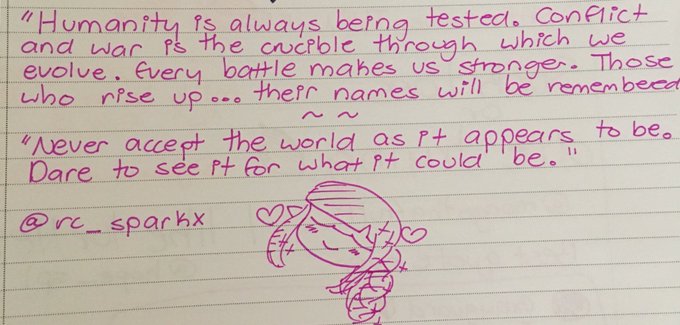 "Humanity is always being tested. Conflict
and war is the crucible through which we
evolve. Every battle makes us stronger. Those
who rise up... their names will be remembeed
~ ~
"Never accept the world as it appears to be.
Dare to see it for what it could be."
@rc_sparkx